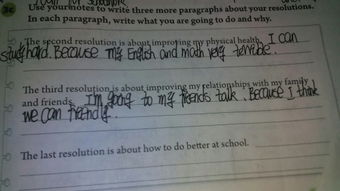 Use yournotes to write three more paragraphs about your resolutions.
In each paragraph, write what you are going to do and why.
The second resolution is about improving my physical health. I can
study hard. Because my English and math very terrible.
The third resolution is about improving my relationships with my family
and friends. I'm going to my friends talk. Because I think
we can friendly.
The last resolution is about how to do better at school.